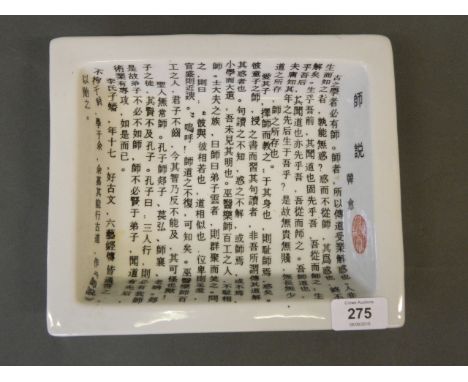 師説 韓愈
古之學者必有師。師者，所以傳道受業解惑也。人非
生而知之者，孰能無惑？惑而不從師，其爲惑也，終不
解矣。生乎吾前，其聞道也固先乎吾，吾從而師之；生
乎吾后，其聞道也亦先乎吾，吾從而師之。吾師道也，
夫庸知其年之先后生于吾乎？是故無貴無賤，無長無少，
道之所存，師之所存也。
愛其子，擇師而教之；于其身也，則耻師焉，惑
彼童子之師，授之書而習其句讀者，非吾所謂傳其道解
其惑者也。句讀之不知，惑之不解，或師焉，或不焉，
小學而大遺，吾未見其明也。巫醫樂師百工之人，不耻相
師。士大夫之族，曰師曰弟子雲者，則群聚而笑之。問
之，則曰：“彼與彼相若也，道相似也，位卑則足羞，
官盛則近諛。”嗚呼！師道之不復，可知矣。巫醫樂師百
工之人，君子不齒，今其智乃反不能及，其可怪也歟！
聖人無常師。孔子師郯子、萇弘、師襄、老聃。郯
子之徒，其賢不及孔子。孔子曰：三人行，則必有我師。
是故弟子不必不如師，師不必賢于弟子，聞道有先后，
術業有專攻，如是而已。
李氏子蟠，年十七，好古文，六藝經傳皆通習之，
不拘于時，學于余，余嘉其能行古道，作師説
以貽之。
275